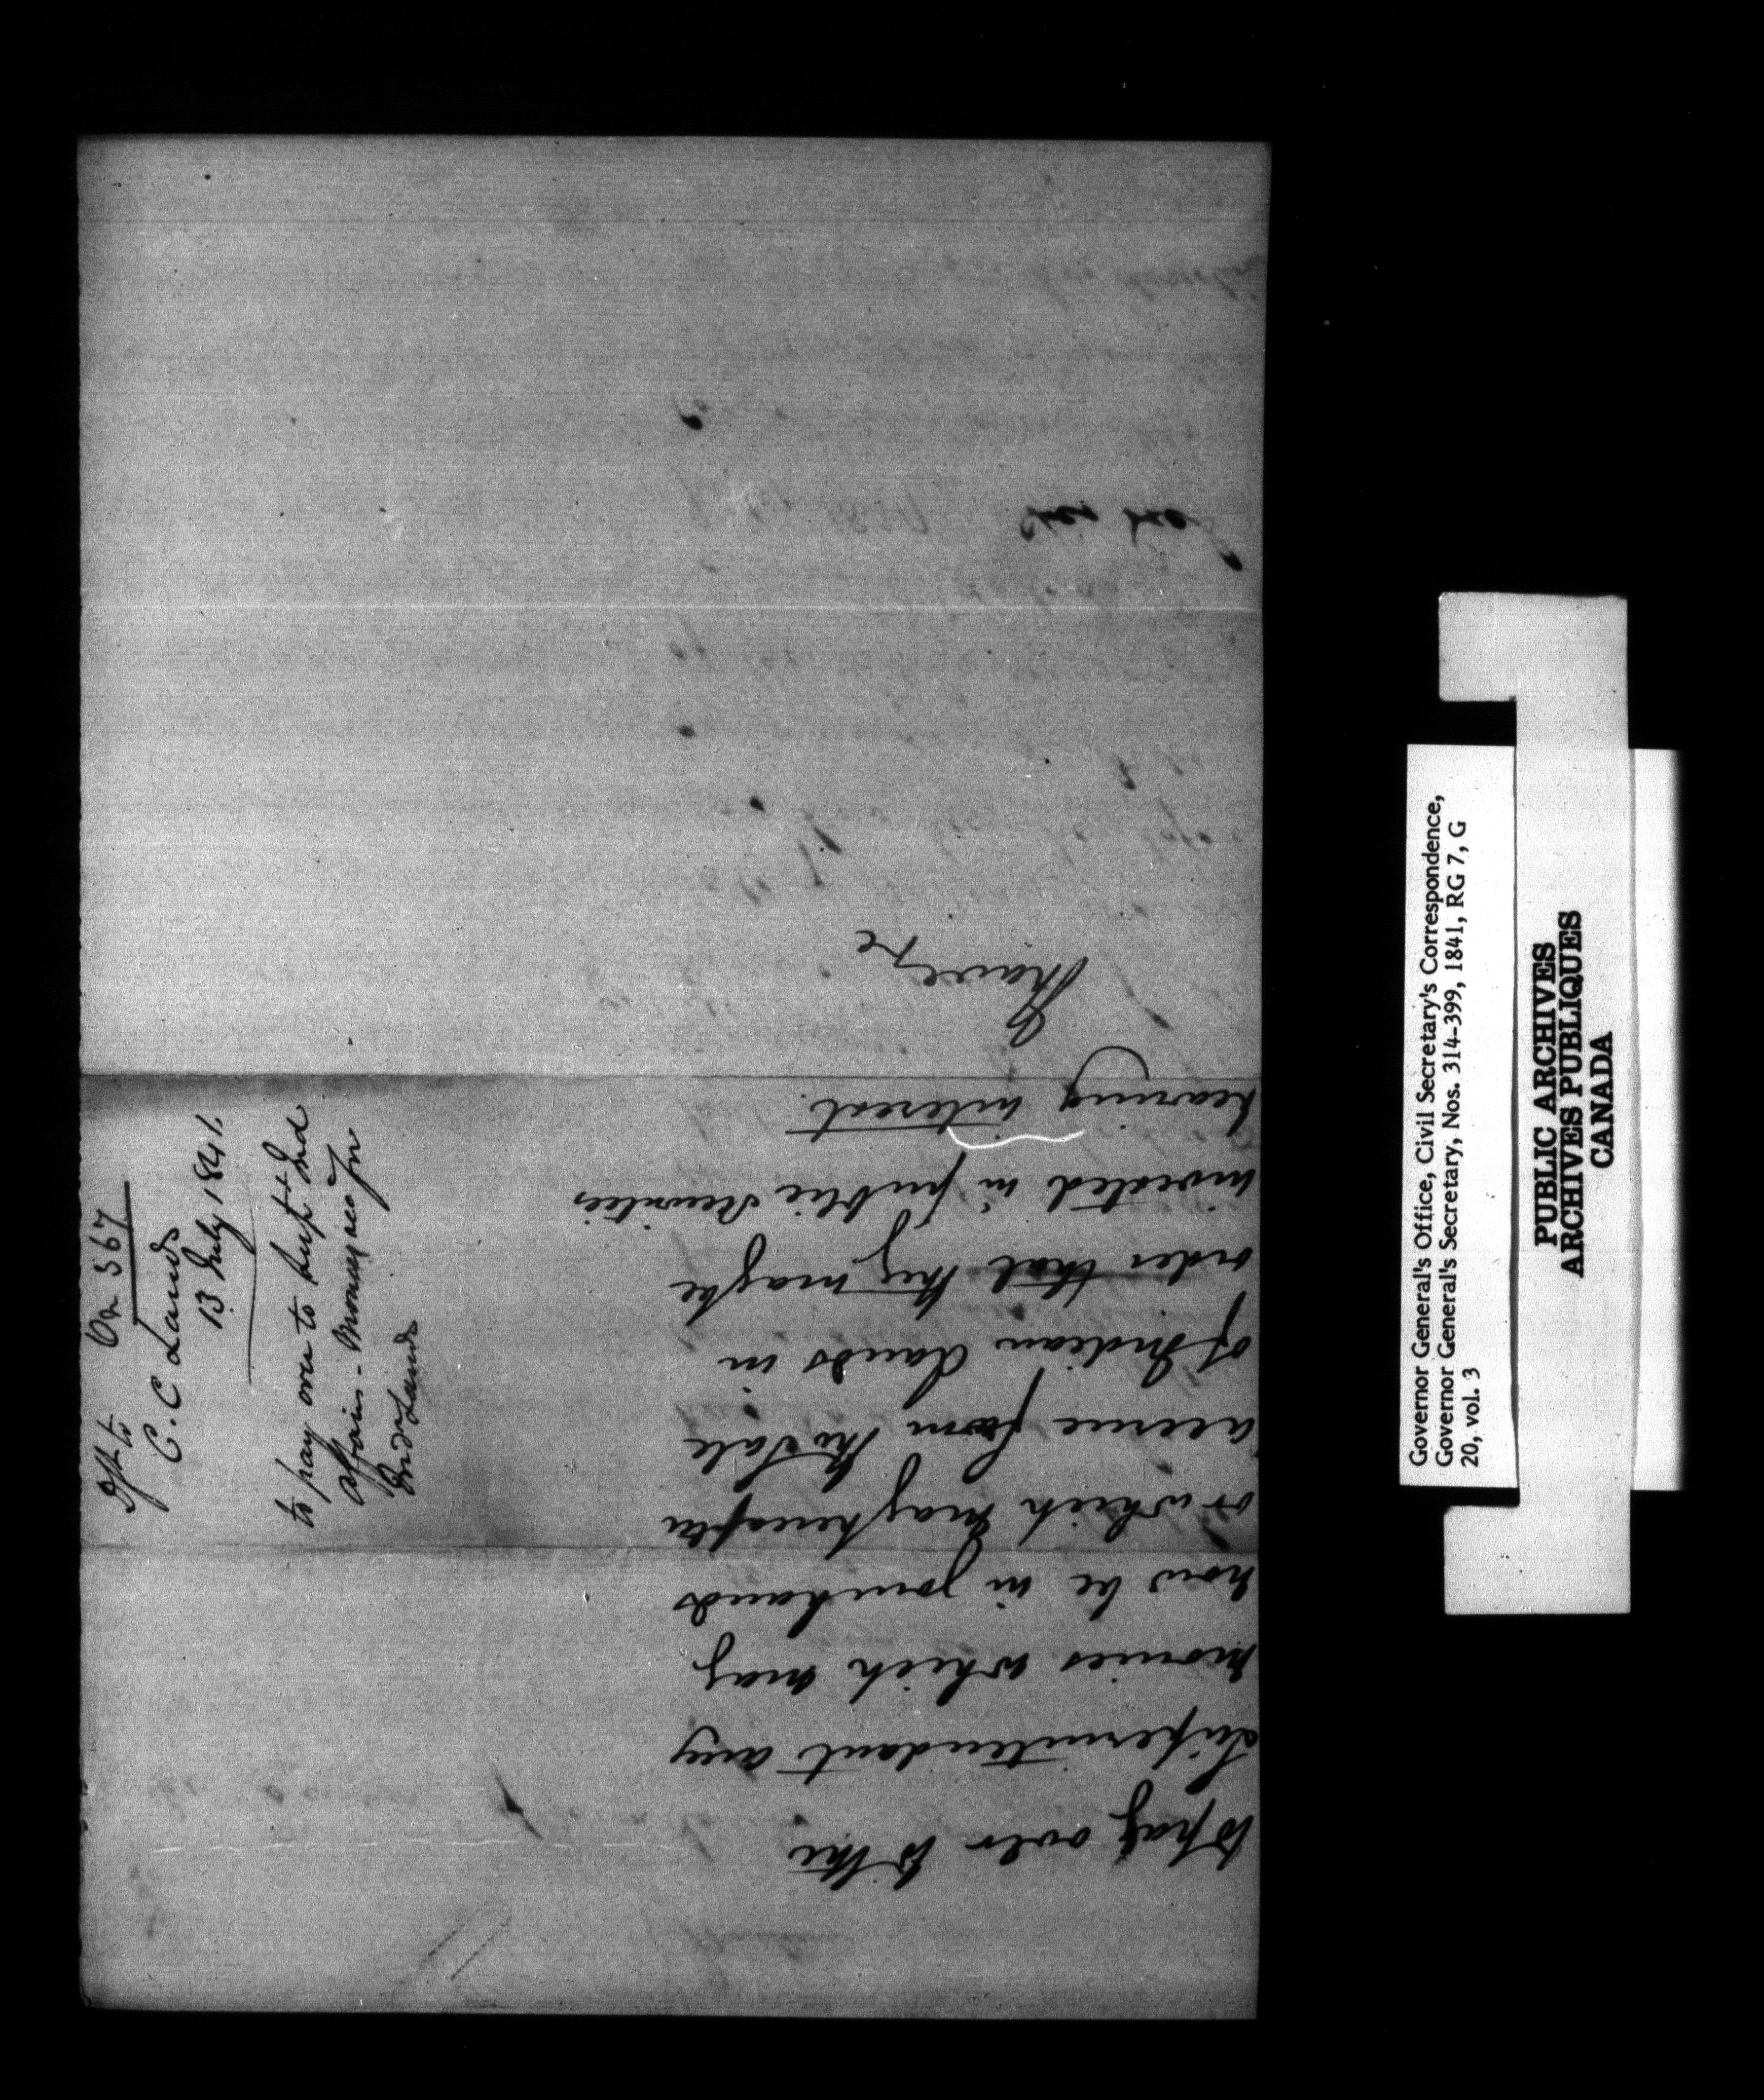 to pay over to the
Superintendant any
monies which may
now be in your hands
or which may hereafter
accrue from the Sale
of Indian Lands in
order that they may be
invested in public securities
bearing interest.
I have &c
Dft to
On 367
C. C Lands
13 July 1841.
to pay over to Supt Ind
Affairs - Moneys acc fm
Ind Lands
Governor General's Office, Civil Secretary's Correspondence,
Governor General's Secretary, Nos. 314-399, 1841, RG 7, G
20, vol. 3
PUBLIC ARCHIVES
ARCHIVES PUBLIQUES
CANADA